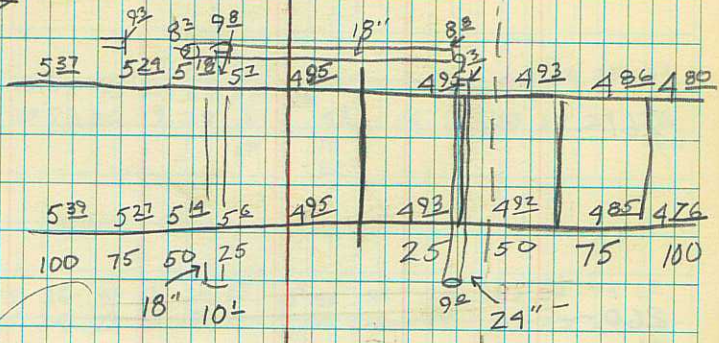 9³ 8² 9⁸ 18" 8⁸
5³⁷ 5²⁹ 5¹⁸ 5⁷ 4⁹⁵ 4⁹⁵ 9³ 4⁹³ 4⁸⁶ 4⁸⁰
5³⁹ 5²⁷ 5¹⁴ 5⁶ 4⁹⁵ 4⁹³ 4⁹² 4⁸⁵ 4⁷⁶
100 75 50 25 25 50 75 100
18" 10¹ 9² 24"